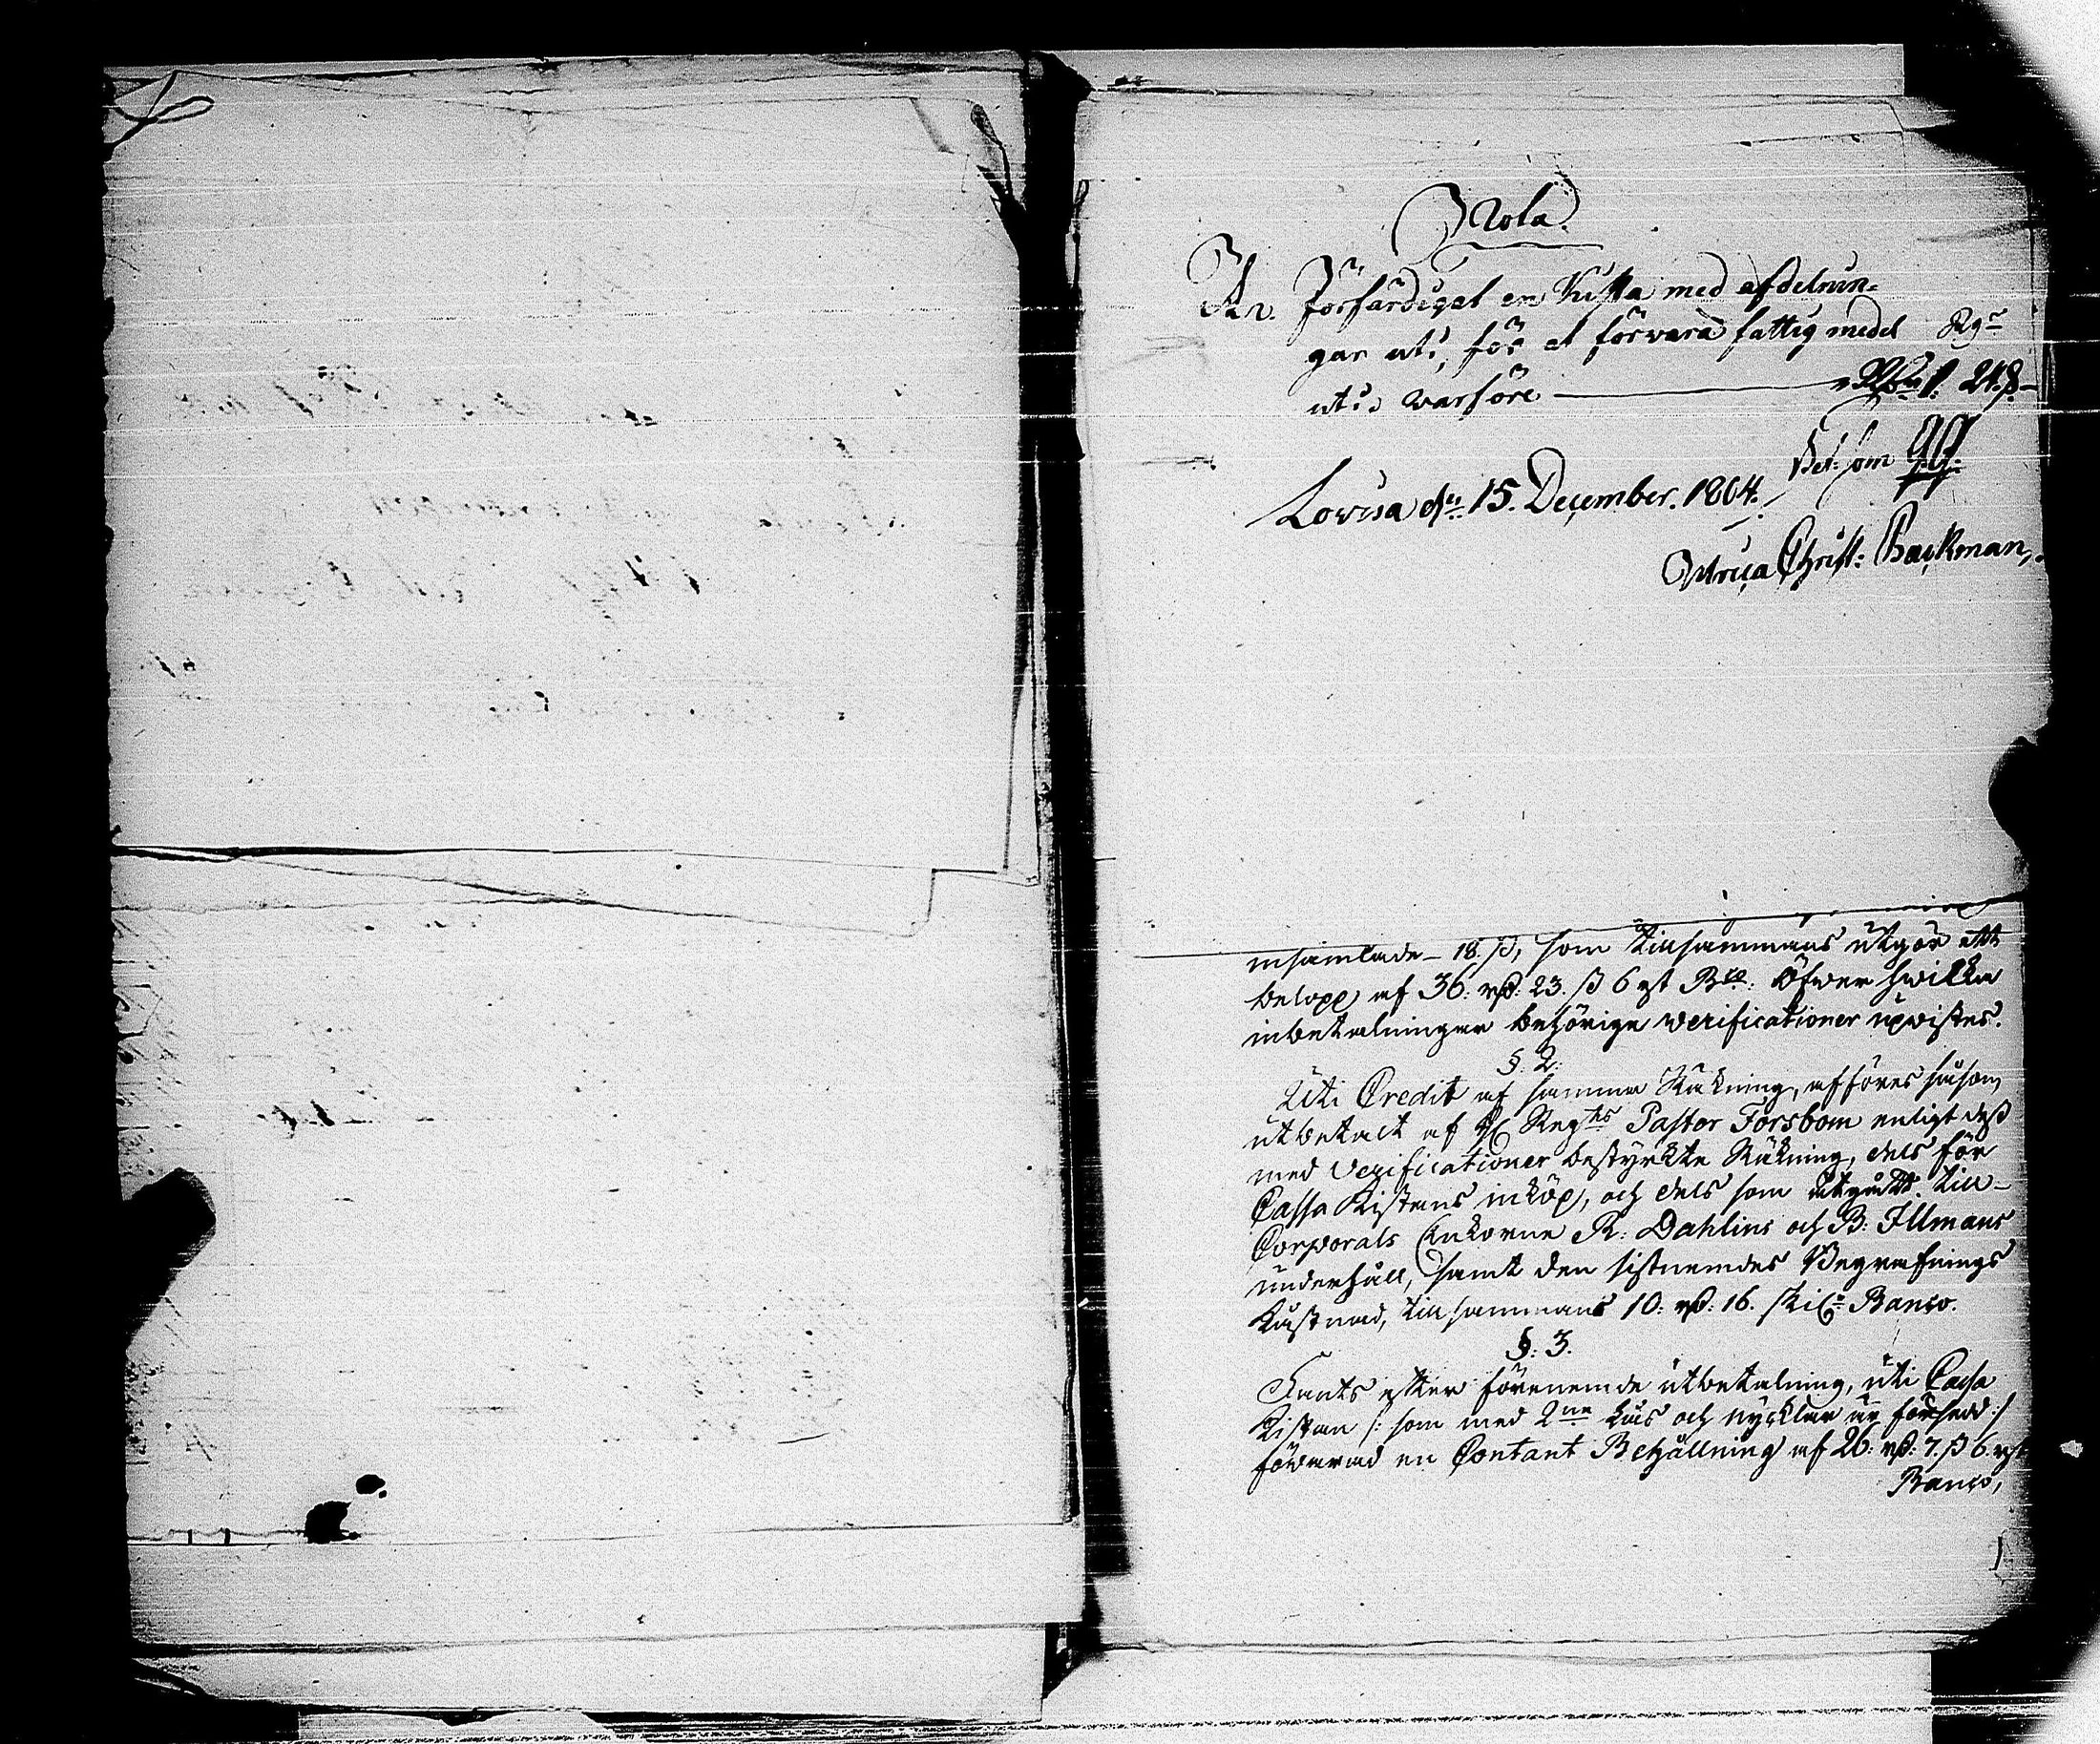 Nota.
Är Förfärdigat en Kista med afdelnin-
gar uti, för at förvara fattig medel Rgs
uti, warföre — Rdr 1: 24 ß.
Bet: som
Lovisa den 15. December. 1804.
Ulrica Christ: Backman,
insamlade – 18. ß, som tillsammans utgör ett
belopp af 36: rd: 23. ß 6 rst Bco. Öfwer hwilka
inbetalningar behörige verificationer upvistes.
§. 2.
Uti Credit af samma Räkning, afföres såsom
utbetalt af H. Regts Pastor Forsbom enligt dess
med Verificationer bestyrkte Räkning, dels för
Cassa Kistans inköp, och dels som utgådt till
Corporals Enkorne R: Dahlins och B: Illmans
underhåll, samt den sistnemdes Begrafnings
Kåstnad, tillsammans 10: rd: 16. skil: Banco.
§: 3.
Fants efter förenemde utbetalning, uti Cassa
Kistan /: som med 2ne lås och nycklar är försedd :/
förwarad en Contant Behållning af 26: rd: 7. ß 6. rst
Banco,